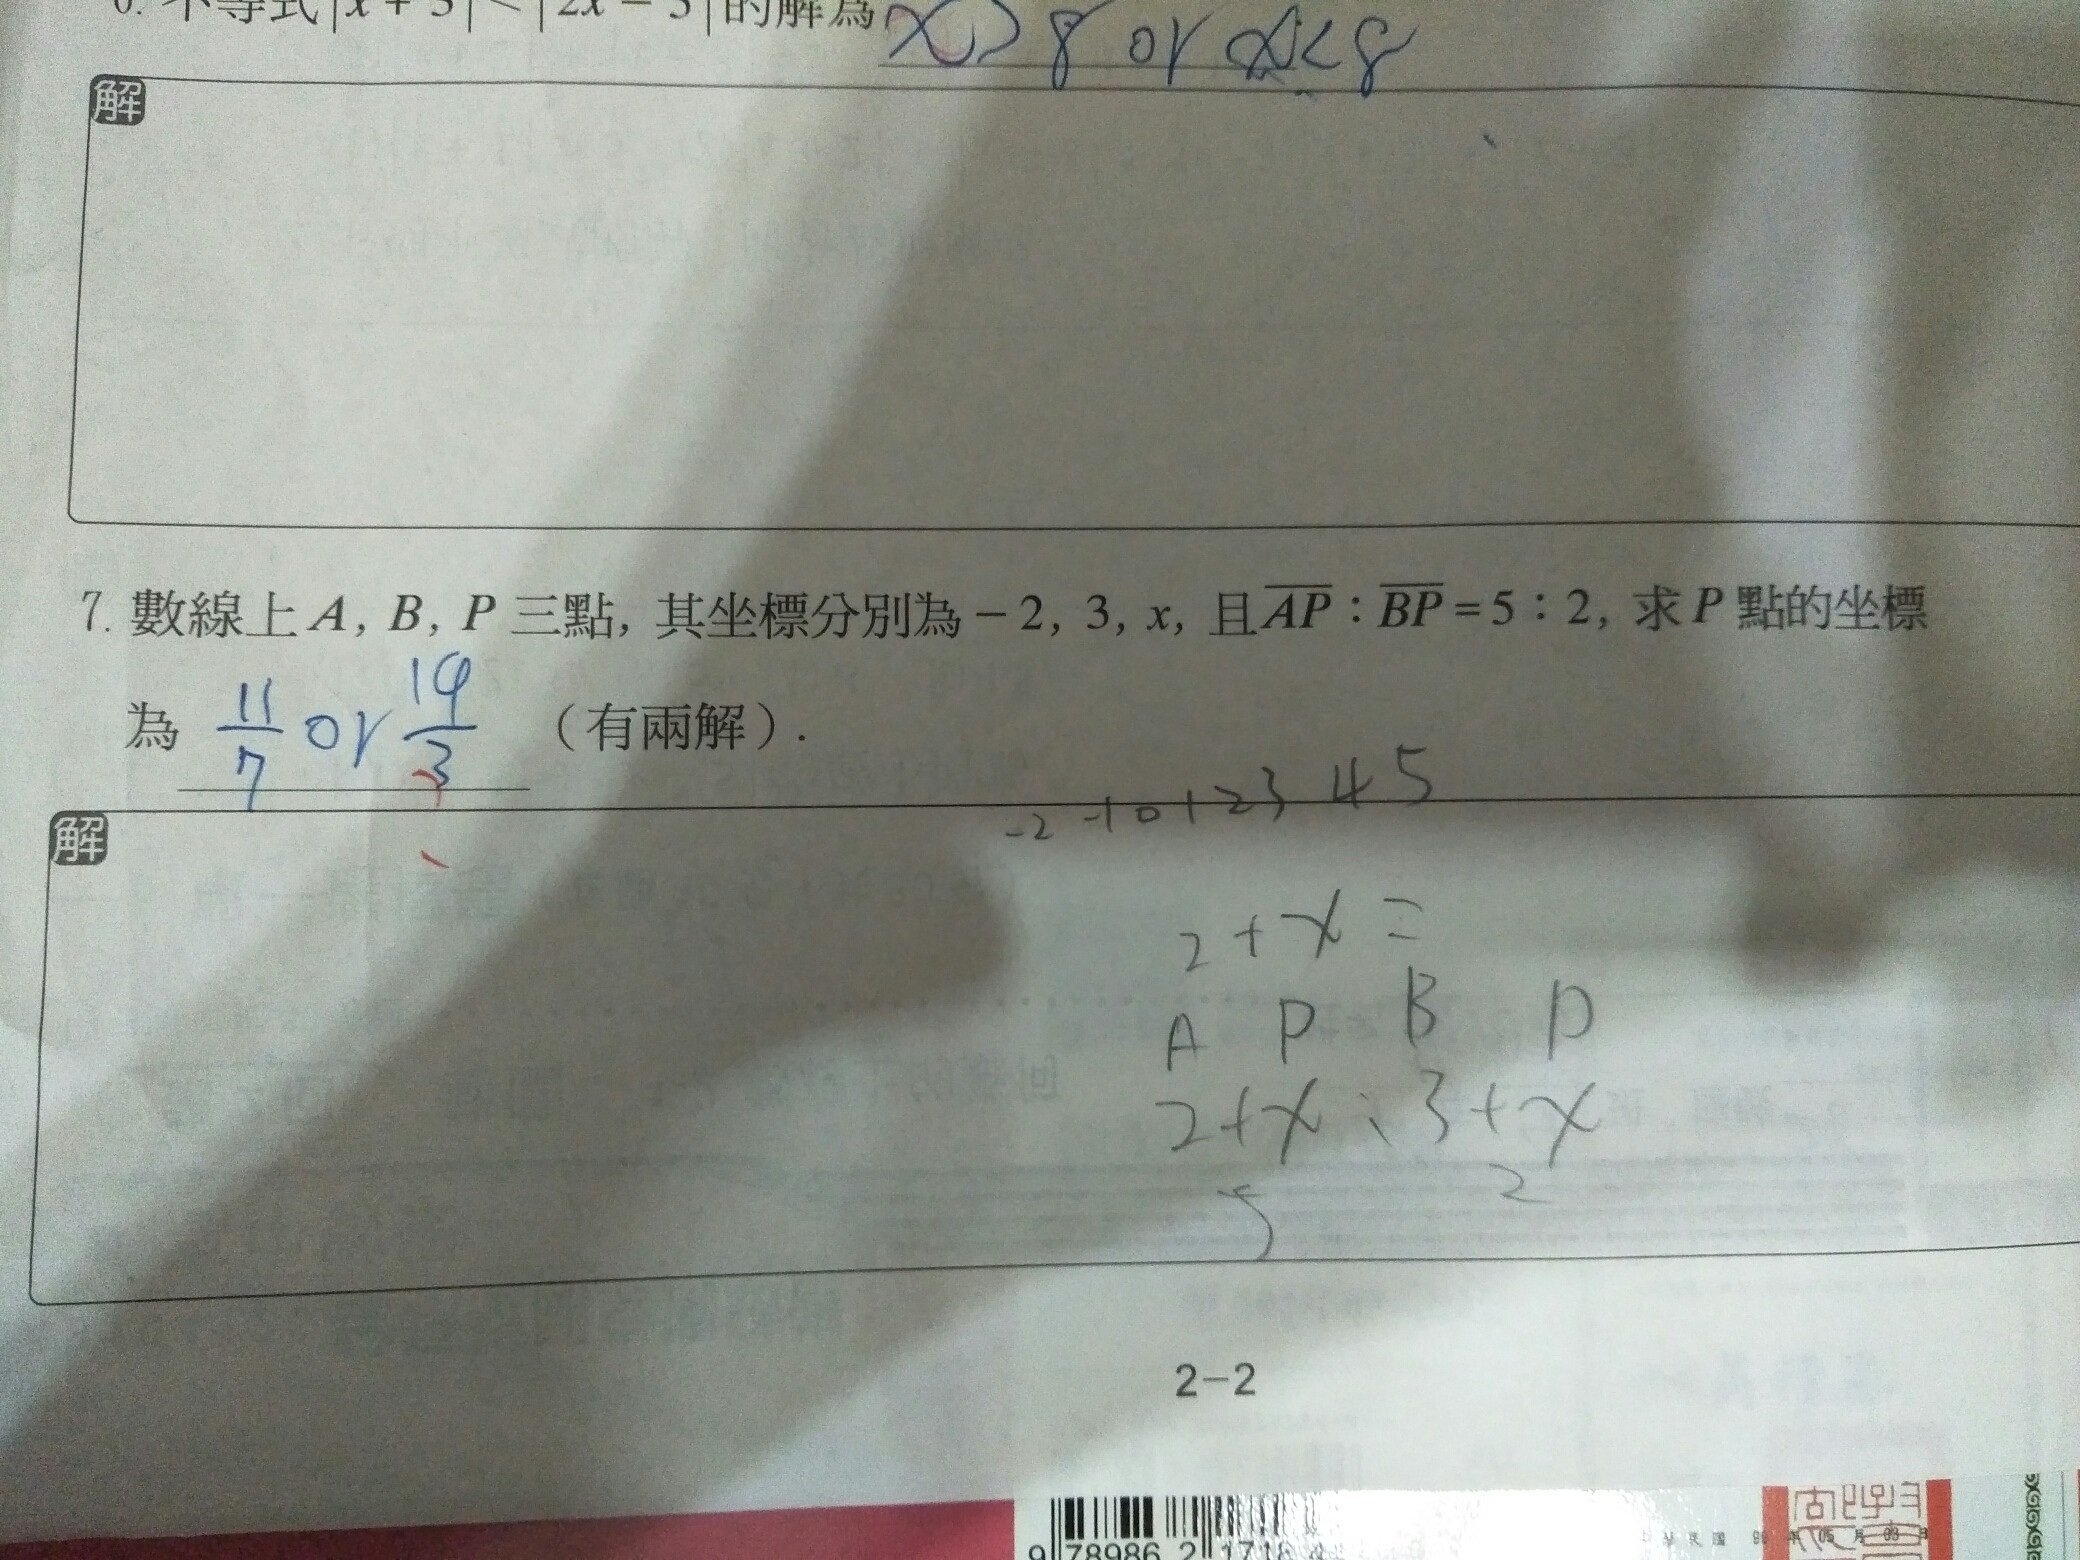 6. 不等式|x + 3| < |2x - 5|的解為 x>8 or x<8
解
7. 數線上 A, B, P 三點, 其坐標分別為 - 2, 3, x, 且 AP : BP = 5 : 2, 求 P 點的坐標
為 11/7 or 19/3 （有兩解）.
-2 -1 0 1 2 3 4 5
解
2 + x =
A P B P
2+x : 3+x
5 2
2-2
9 78986 2 1718